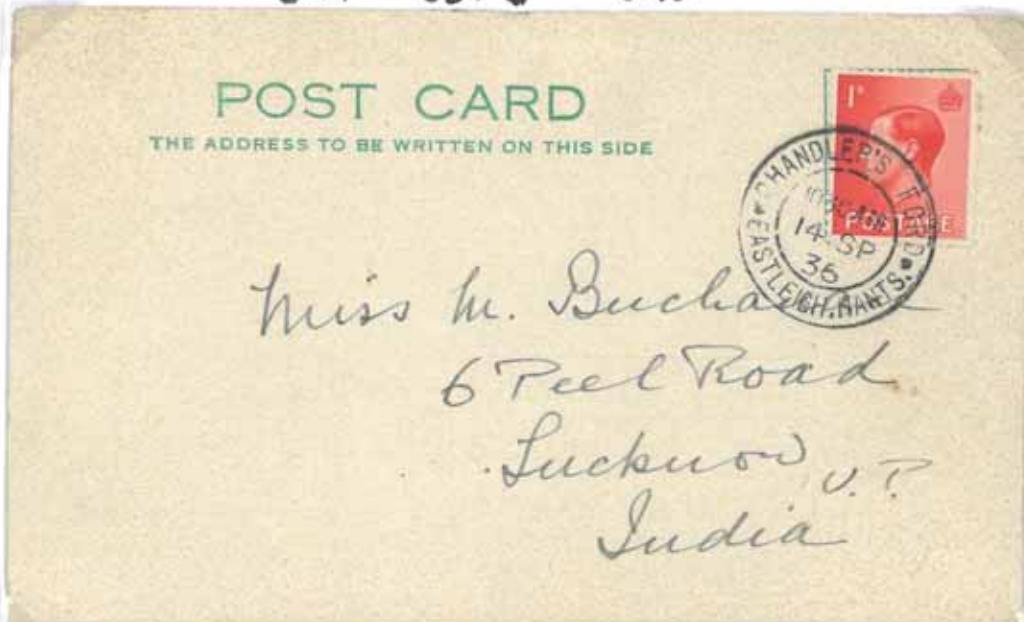 POST CARD
THE ADDRESS TO BE WRITTEN ON THIS SIDE
1D
POSTAGE
CHANDLER'S FORD
14 SP
36
EASTLEIGH, HANTS.
Miss M.
6 Peel Road
Lucknow U.P.
India